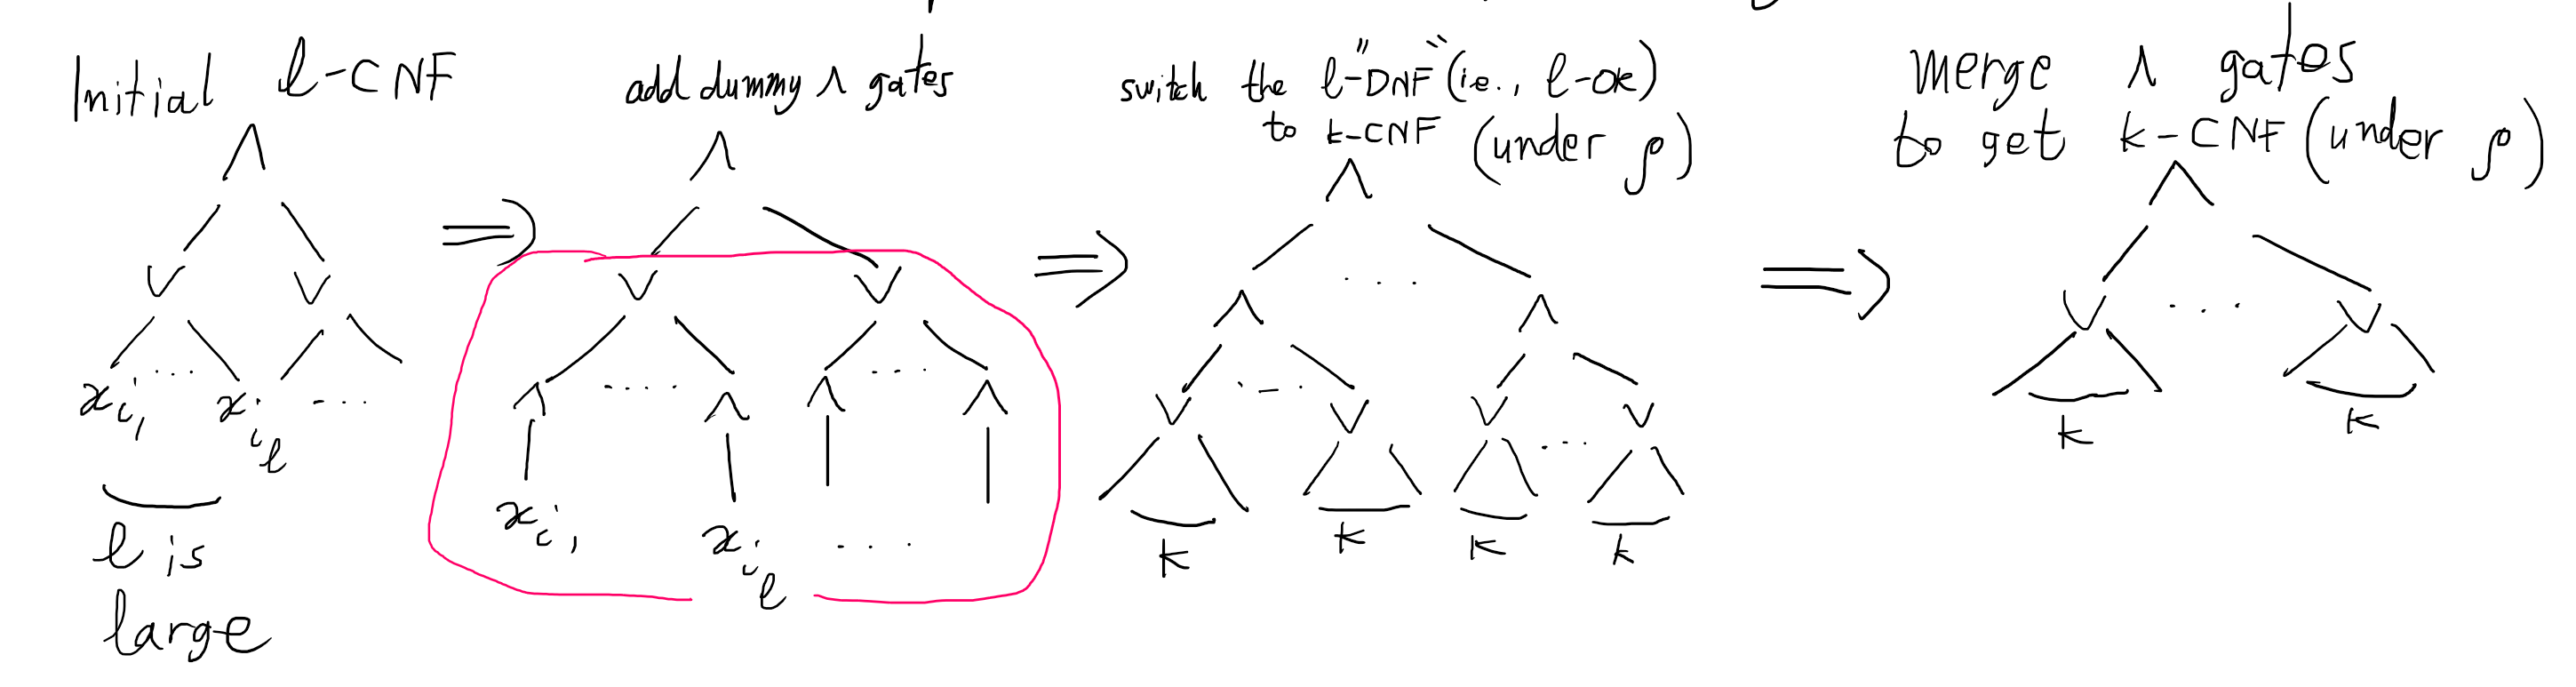 Initial ℓ-CNF
∧
∨ ∨
x_{i_1} ... x_{i_ℓ} ...
ℓ is
large
⇒
add dummy ∧ gates
∧
∨ ∨
∧ .... ∧ ∧ ... ∧
x_{i_1} x_{i_ℓ} ...
⇒
switch the ℓ-"DNF" (i.e., ℓ-OR)
to k-CNF (under ρ)
∧
∧ ... ∧
∨ ... ∨ ∨ ... ∨
k k k k
⇒
Merge ∧ gates
to get k-CNF (under ρ)
∧
∨ ... ∨
k k